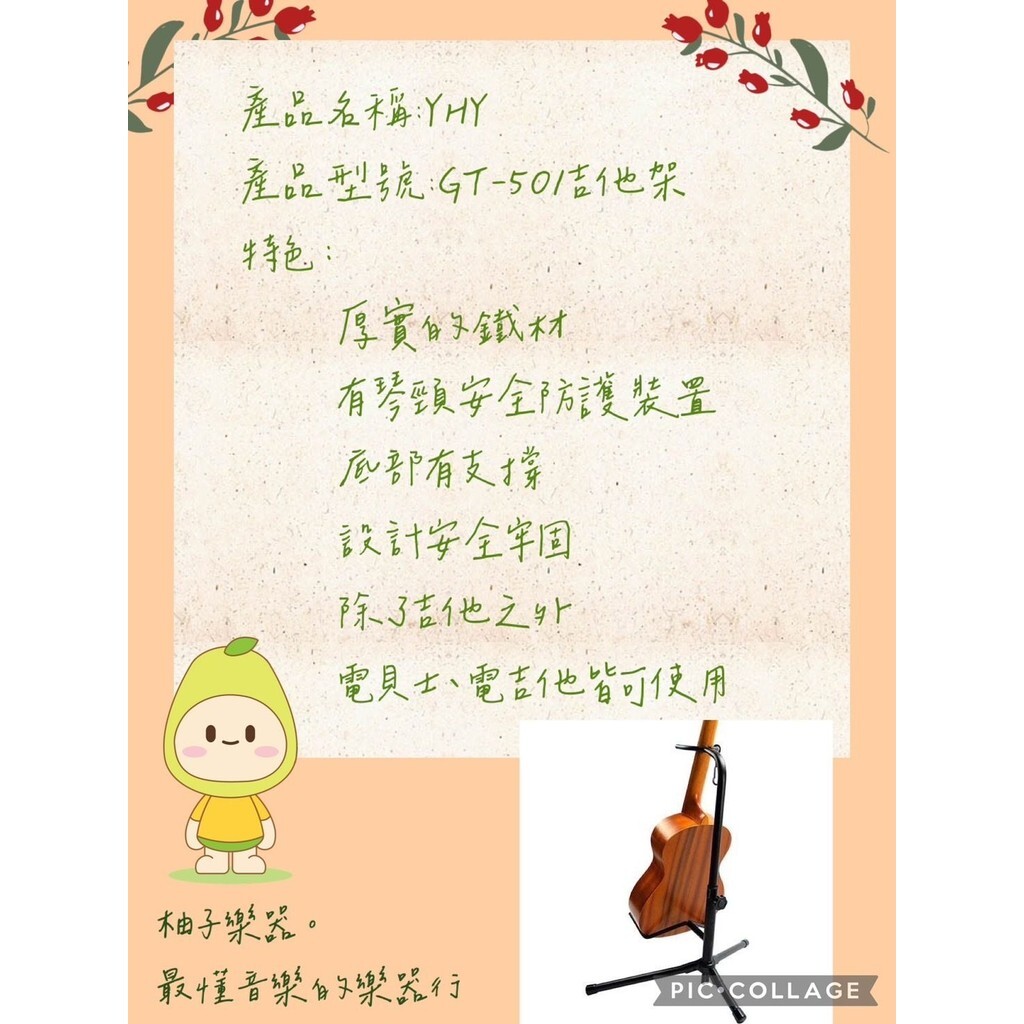 產品名稱:YHY
產品型號:GT-501吉他架
特色:
厚實的鐵材
有琴頸安全防護裝置
底部有支撐
設計安全牢固
除了吉他之外
電貝士、電吉他皆可使用
柚子樂器。
最懂音樂的樂器行
PIC•COLLAGE